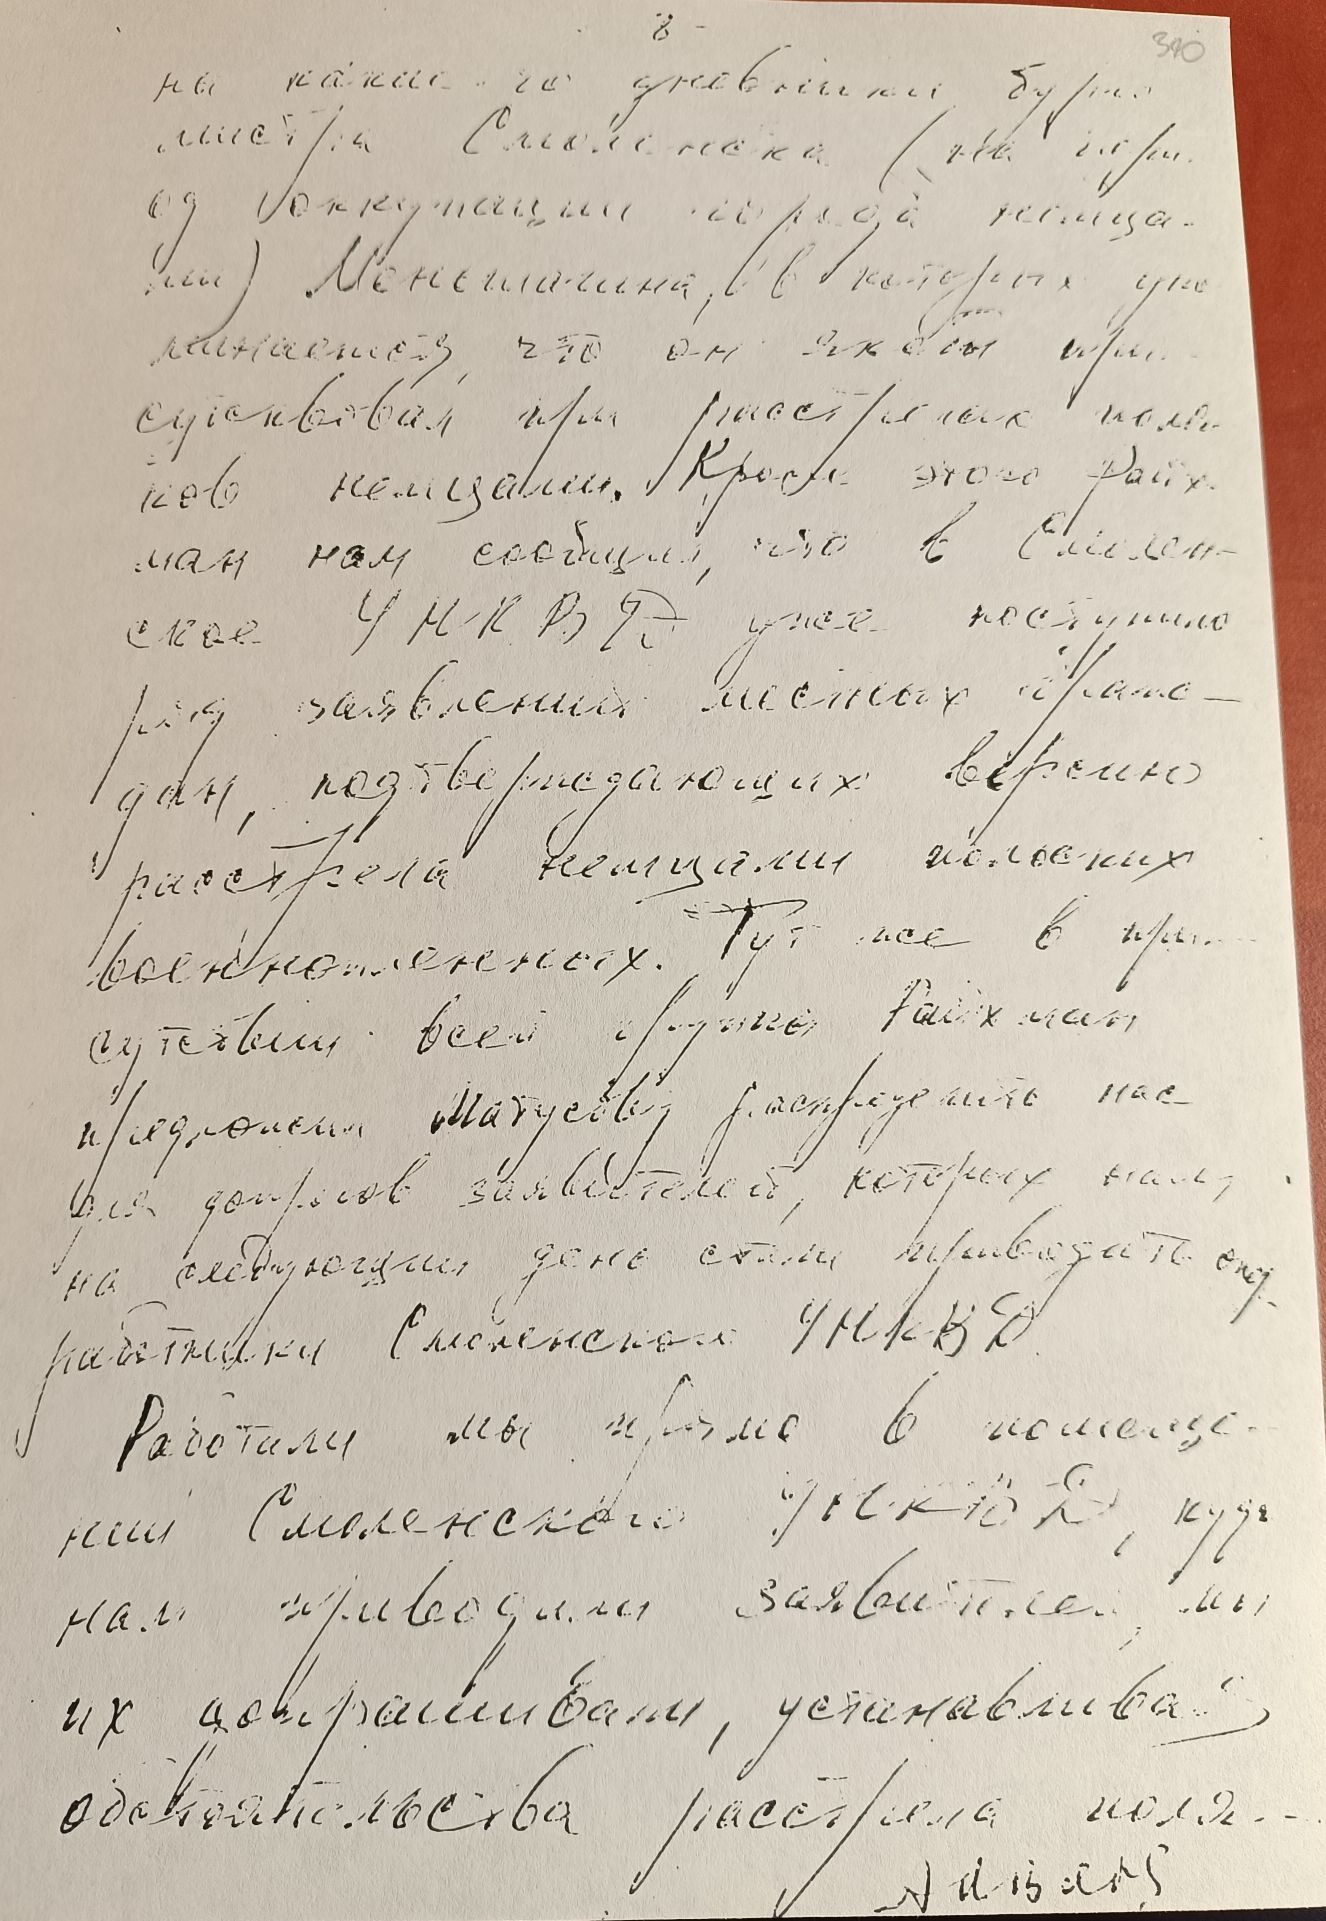 8 -
310
на какие-то дневники бурго-
мистра Смоленска (на пери-
од оккупации города немца-
ми) Меньшагина, в которых упо-
минается, что он якобы при-
сутствовал при расстрелах поля-
ков немцами. Кроме этого Райх-
ман нам сообщил, что в Смолен-
ское УНКВД уже поступило
ряд заявлений местных граж-
дан, подтверждающих версию
расстрела немцами польских
военнопленных. Тут же в при-
сутствии всей группы Райхман
предложил Матусову распределить нас
для допросов заявителей, которых нам,
на следующий день стали приводить опер.
работники Смоленского УНКВД.
Работали мы прямо в помеще-
нии Смоленского УНКВД, куда
нам приводили заявителей, мы
их допрашивали, устанавливая
обстоятельства расстрела поля-